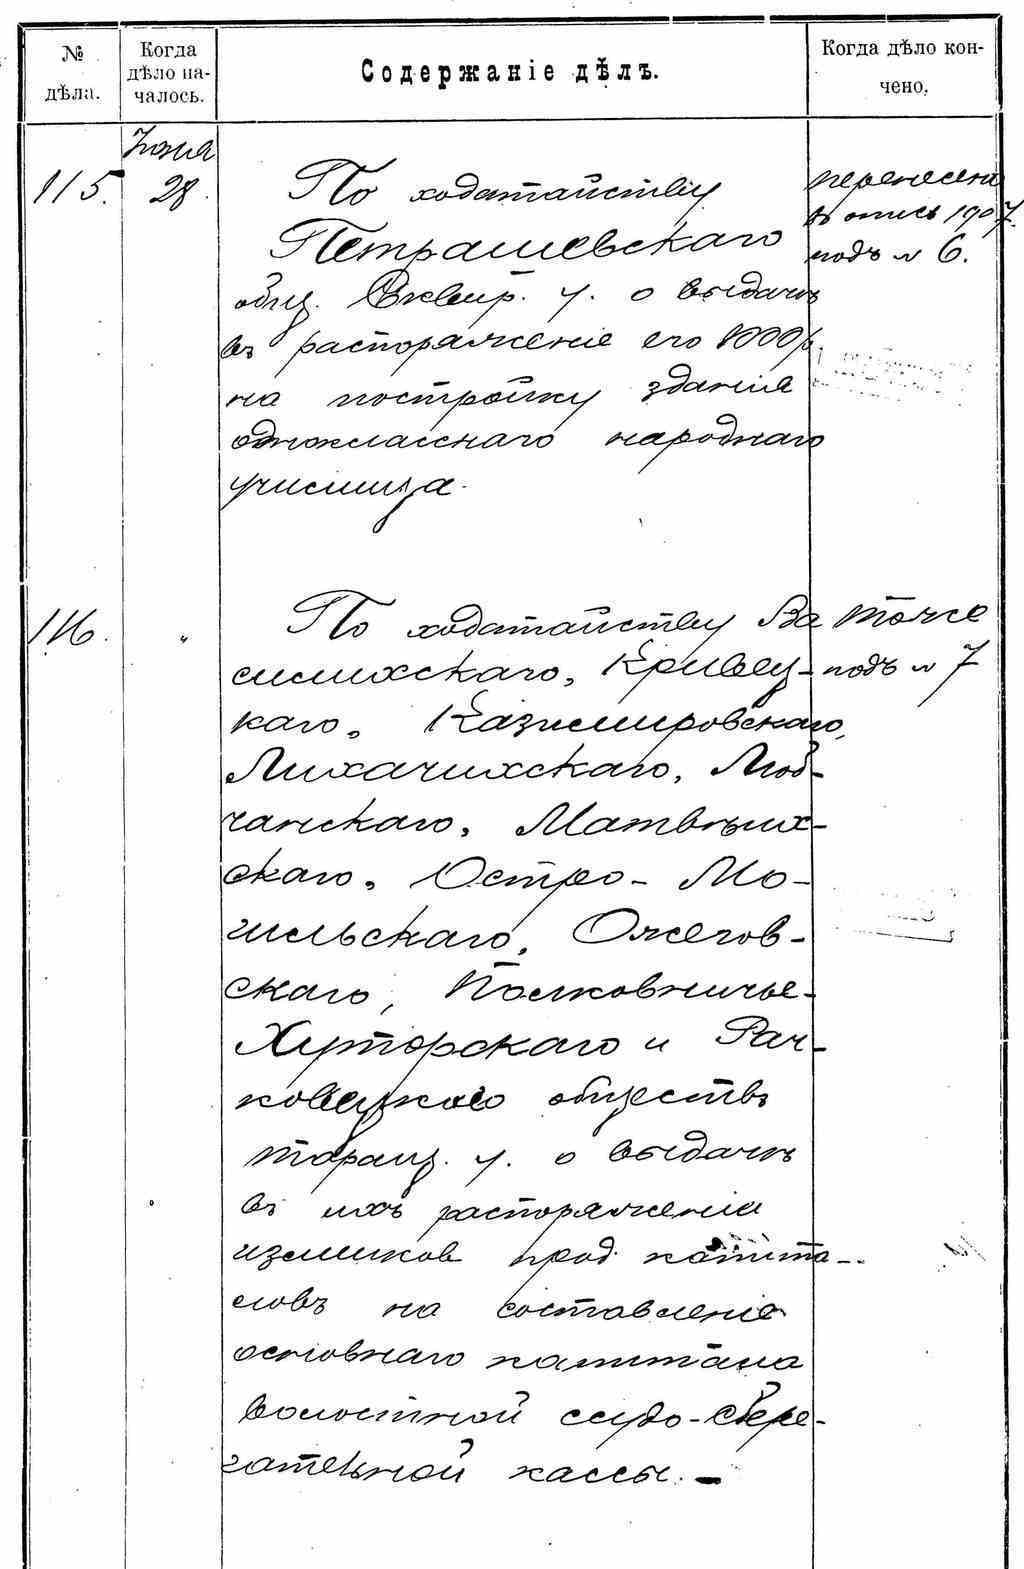 № дѣла.
Когда дѣло началось.
Содержаніе дѣлъ.
Когда дѣло кончено.
Іюня
115. 28.
По ходатайству
Петрашевскаго
общ. Сквир. у. о выдачѣ
въ распоряженіе его 1000 р.
на постройку зданія
однокласснаго народнаго
училища.
перенесено
въ опись 1907.
подъ № 6.
116. "
По ходатайству Ва
силихскаго, Кривец-
каго, Казимировскаго,
Лихачихскаго, Люб-
чанскаго, Матвѣих-
скаго, Остро-Мо-
гильскаго, Ожегов-
скаго, Полковничье-
Хуторскаго и Рач-
ковецкаго обществъ
Таращ. у. о выдачѣ
въ ихъ распоряженіе
излишков прод. капита-
ловъ на составленіе
основнаго капитала
волостной ссудо-сбере-
гательной кассы. –
тоже
подъ № 7